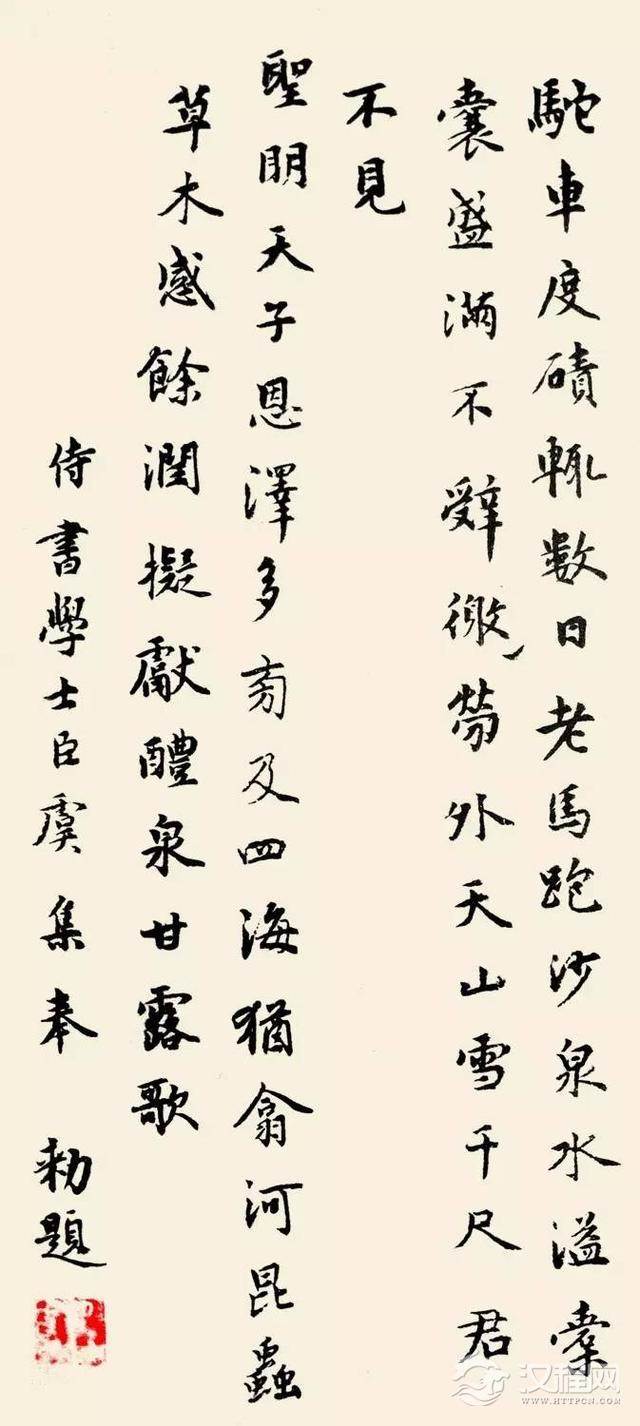 駝車度磧輒數日老馬跑沙泉水溢橐
囊盛滿不辭微勞外天山雪千尺君
不見
聖明天子恩澤多旁及四海猶翕河昆蟲
草木感餘潤擬獻醴泉甘露歌
侍書學士臣虞集奉 勑題
汉程网
HTTPCN.COM